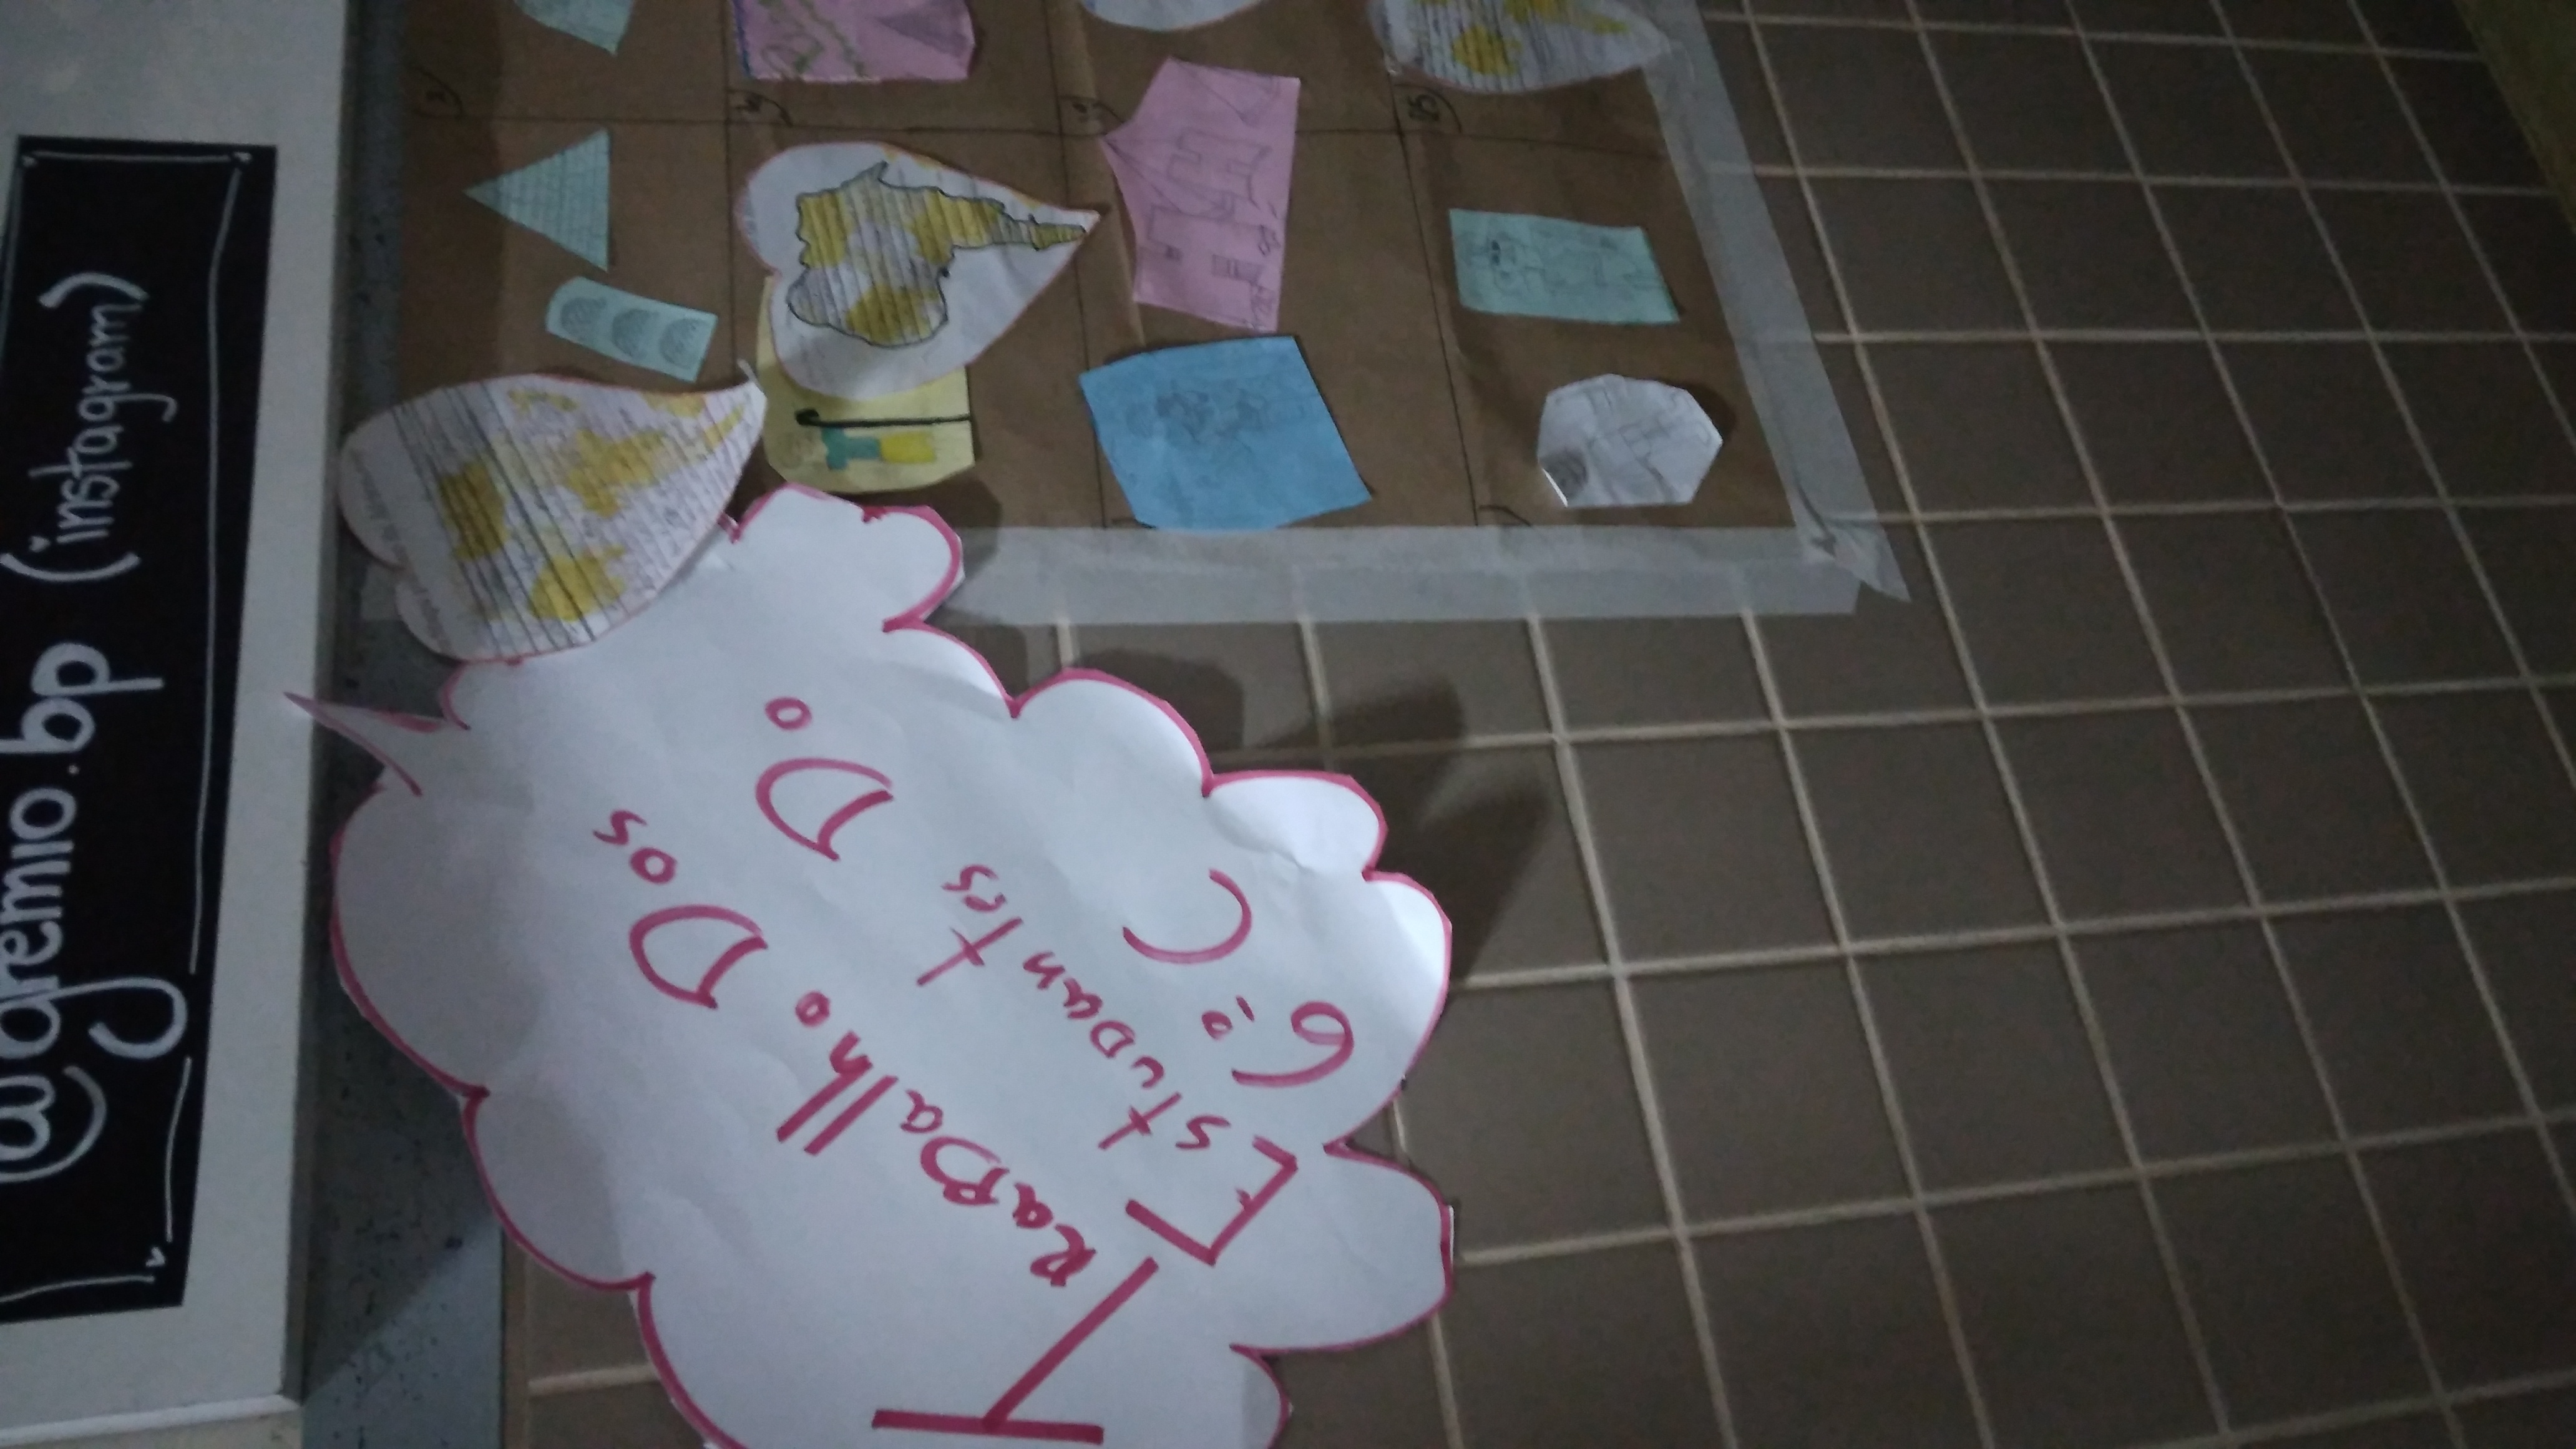 @gremio.bp (instagram)
TRaBalho Dos
EstuDantes Do
6º C
2
15